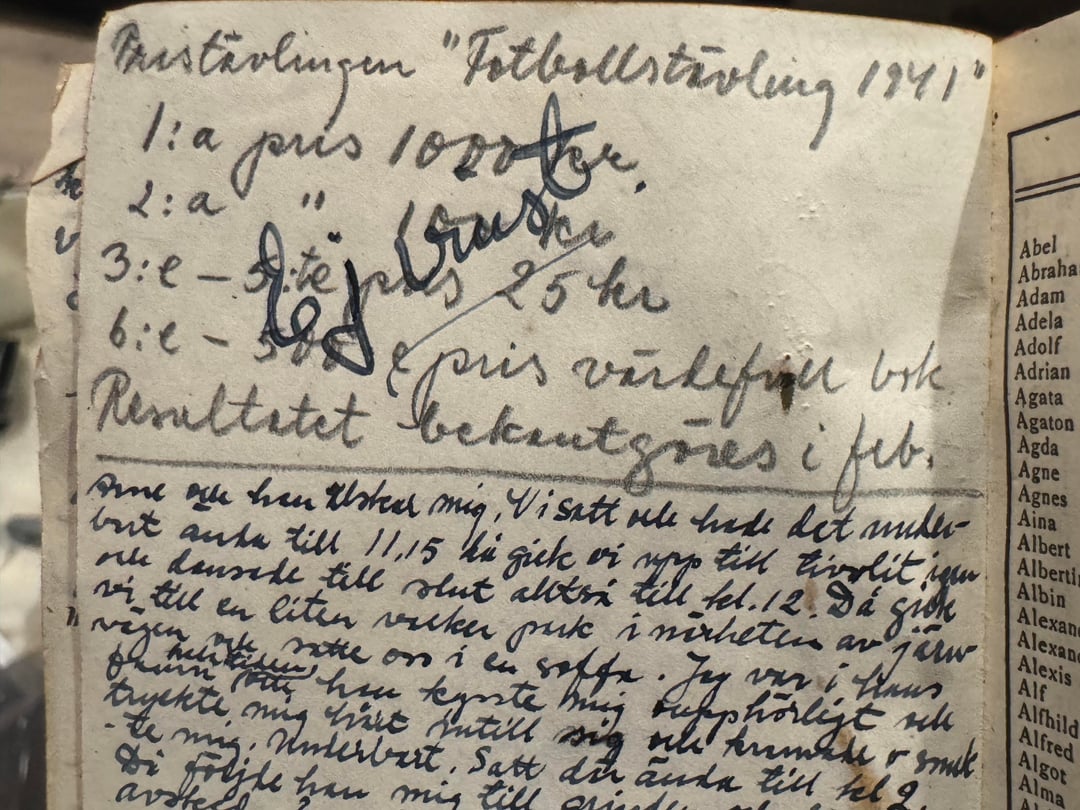 Pristävlingen "Fotbollstävling 1941"
1:a pris 1000 kr.
2:a " kr
3:e – 5:te pris 25 kr
Ej
6:e – pris värdefull bok
Resultatet bekantgöres i feb.
och han älskar mig. Vi satt och hade det under-
bart ända till 11,15 då gick vi upp till tivolit igen
och dansade till slut alltså till kl. 12. Då gick
vi till en liten vacker park i närheten av järn-
vägen och satte oss i en soffa. Jag var i hans
famn hela tiden, han kysste mig oupphörligt och
tryckte mig hårt intill sig och kramade o smek
-te mig. Underbart. Satt där ända till kl 2.
Då följde han mig till grinden och
Abel
Abraha
Adam
Adela
Adolf
Adrian
Agata
Agaton
Agda
Agne
Agnes
Aina
Albert
Alberti
Albin
Alexan
Alexan
Alexis
Alf
Alfhild
Alfred
Algot
Alma